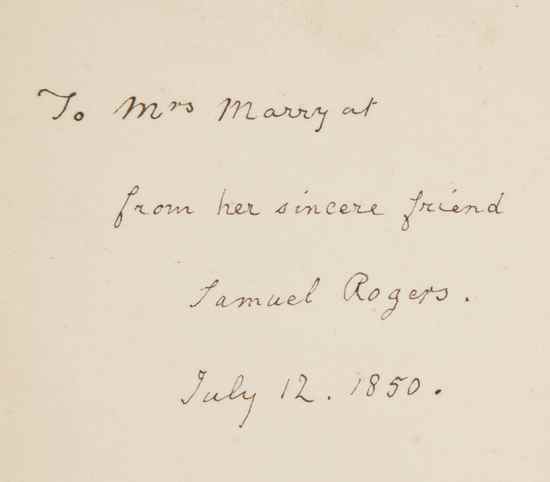 To Mrs Marryat
from her sincere friend
Samuel Rogers.
July 12. 1850.